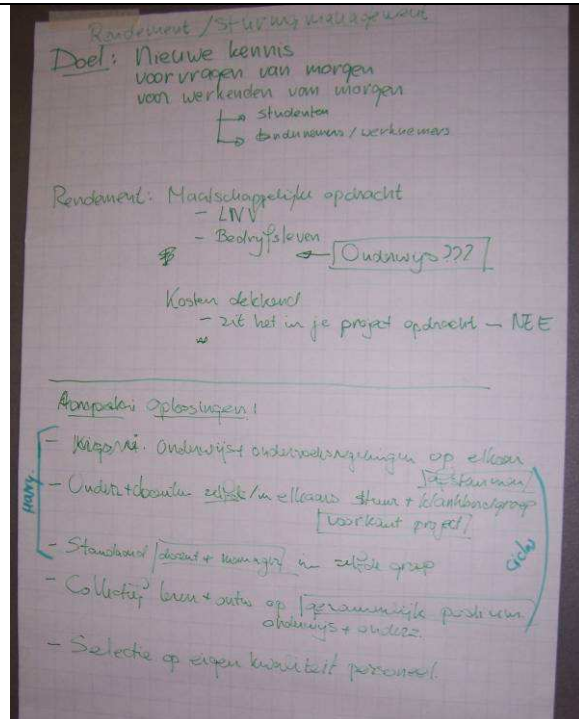 Rendement / sturing management
Doel: Nieuwe kennis
voor vragen van morgen
voor werkenden van morgen
→ studenten
→ ondernemers / werknemers
Rendement: Maatschappelijke opdracht
- LNV
- Bedrijfsleven
← Onderwijs???
Kosten dekkend
- zit het in je project opdracht - NEE
oplossingen!
- Onderwijs + op elkaar
afstemmen
- Onderz + docenten zelfde / in elkaars stuur + klankbordgroep
voorkant project
- Standaard docent + manager in zelfde groep
- Collectief leren + op gezamenlijk
onderwijs + onderz.
- Selectie op eigen kwaliteit personeel.